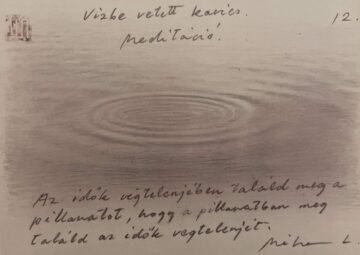 Vizbe vetett kavics. 12.
Meditáció.
Az idők végtelenjében találd meg a
pillanatot, hogy a pillanatban meg
találd az idők végtelenjét.
L.